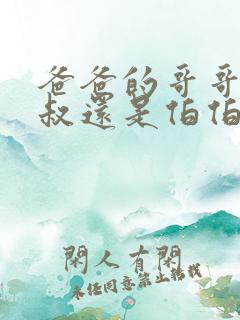 爸爸的哥哥
叔還是伯伯
閑人有閑
未经同意禁止转载